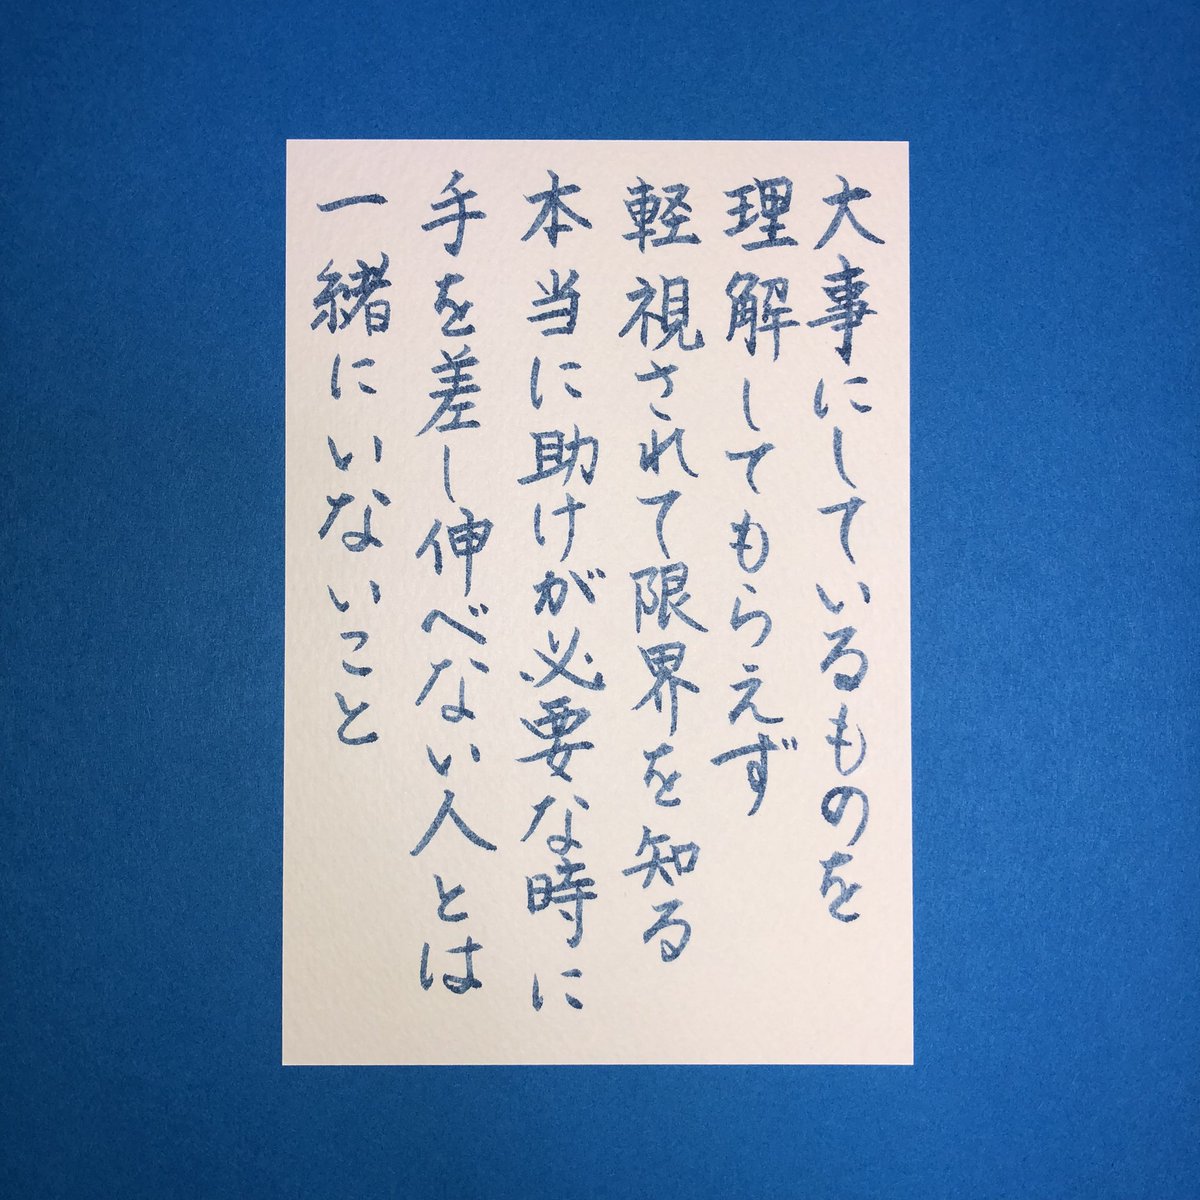 大事にしているものを
理解してもらえず
軽視されて限界を知る
本当に助けが必要な時に
手を差し伸べない人とは
一緒にいないこと